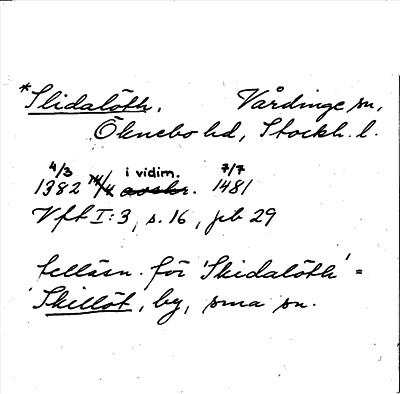 *Slidalöth. Vårdinge sn,
Öknebo hd, Stockh. l.
4/3 i vidim. 7/7
1382 14/4 avskr. 1481
Vft I:3, s. 16, jfb 29
felläsn. för 'Skidalöth' =
Skillöt, by, sma sn.